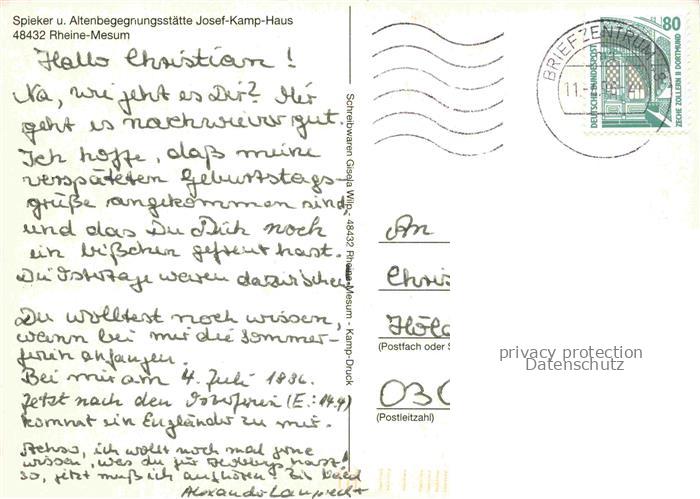 Spieker u. Altenbegegnungsstätte Josef-Kamp-Haus
48432 Rheine-Mesum
Hallo Christian!
Na, wie geht es Dir? Mir
geht es nach wie vor gut.
Ich hoffe, daß meine
verspäteten Geburtstags-
grüße angekommen sind
und das Du Dich noch
ein bißchen gefreut hast.
Die Ostertage waren dazwischen
Du wolltest noch wissen,
wann bei mir die Sommer-
ferien anfangen.
Bei mir am 4. Juli 1996.
Jetzt nach den Osterferien (E.: 14.4)
kommt ein Engländer zu mir.
Achso, ich wollt noch mal gerne
wissen, was du für Hobbys hast!
So, jetzt muß ich aufhören! Bis bald
Alexander
Schreibwaren Gisela Wilp, 48432 Rheine-Mesum - Kamp-Druck
BRIEFZENTRUM
11.
DEUTSCHE BUNDESPOST
80
ZECHE ZOLLERN II DORTMUND
An
Chris
Höl
(Postfach oder S
030
(Postleitzahl)
privacy protection
Datenschutz